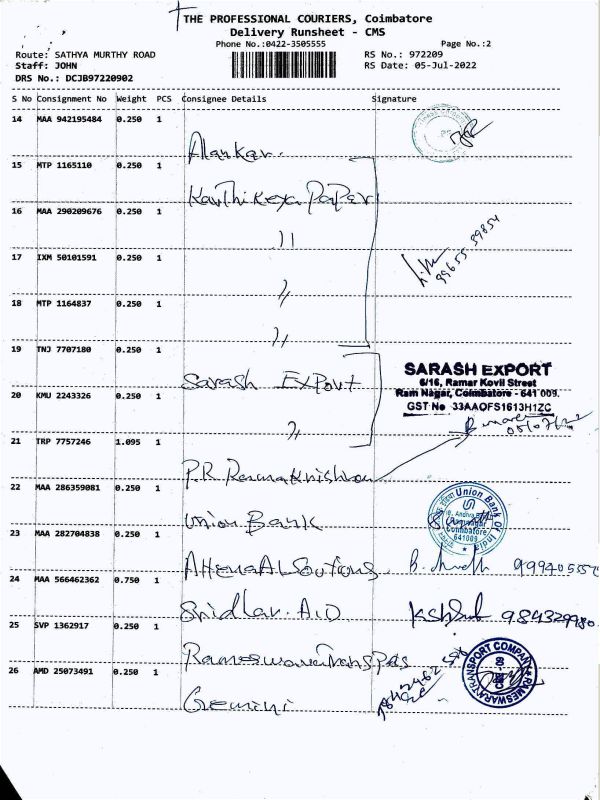 THE PROFESSIONAL COURIERS, Coimbatore
Delivery Runsheet - CMS
Phone No.:0422-3505555 Page No.:2
Route: SATHYA MURTHY ROAD RS No.: 972209
Staff: JOHN RS Date: 05-Jul-2022
DRS No.: DCJB97220902
S No Consignment No Weight PCS Consignee Details Signature
14 MAA 942195484 0.250 1
Alankar.
15 MTP 1165110 0.250 1
Karthikeya Paper
16 MAA 290209676 0.250 1
99655 39854
17 IXM 50101591 0.250 1
18 MTP 1164837 0.250 1
19 TNJ 7707180 0.250 1
Sarash Export
SARASH EXPORT
6/16, Ramar Kovil Street
Ram Nagar, Coimbatore - 641 009.
GST No 33AAQFS1613H1ZC
20 KMU 2243326 0.250 1
21 TRP 7757246 1.095 1
P.R. Ramakrishnan
22 MAA 286359081 0.250 1
Union Bank
Union Bank of India
Coimbatore
641009
23 MAA 282704838 0.250 1
24 MAA 566462362 0.750 1
25 SVP 1362917 0.250 1
RAMESWARA TRANSPORT COMPANY
26 AMD 25073491 0.250 1
Gemini